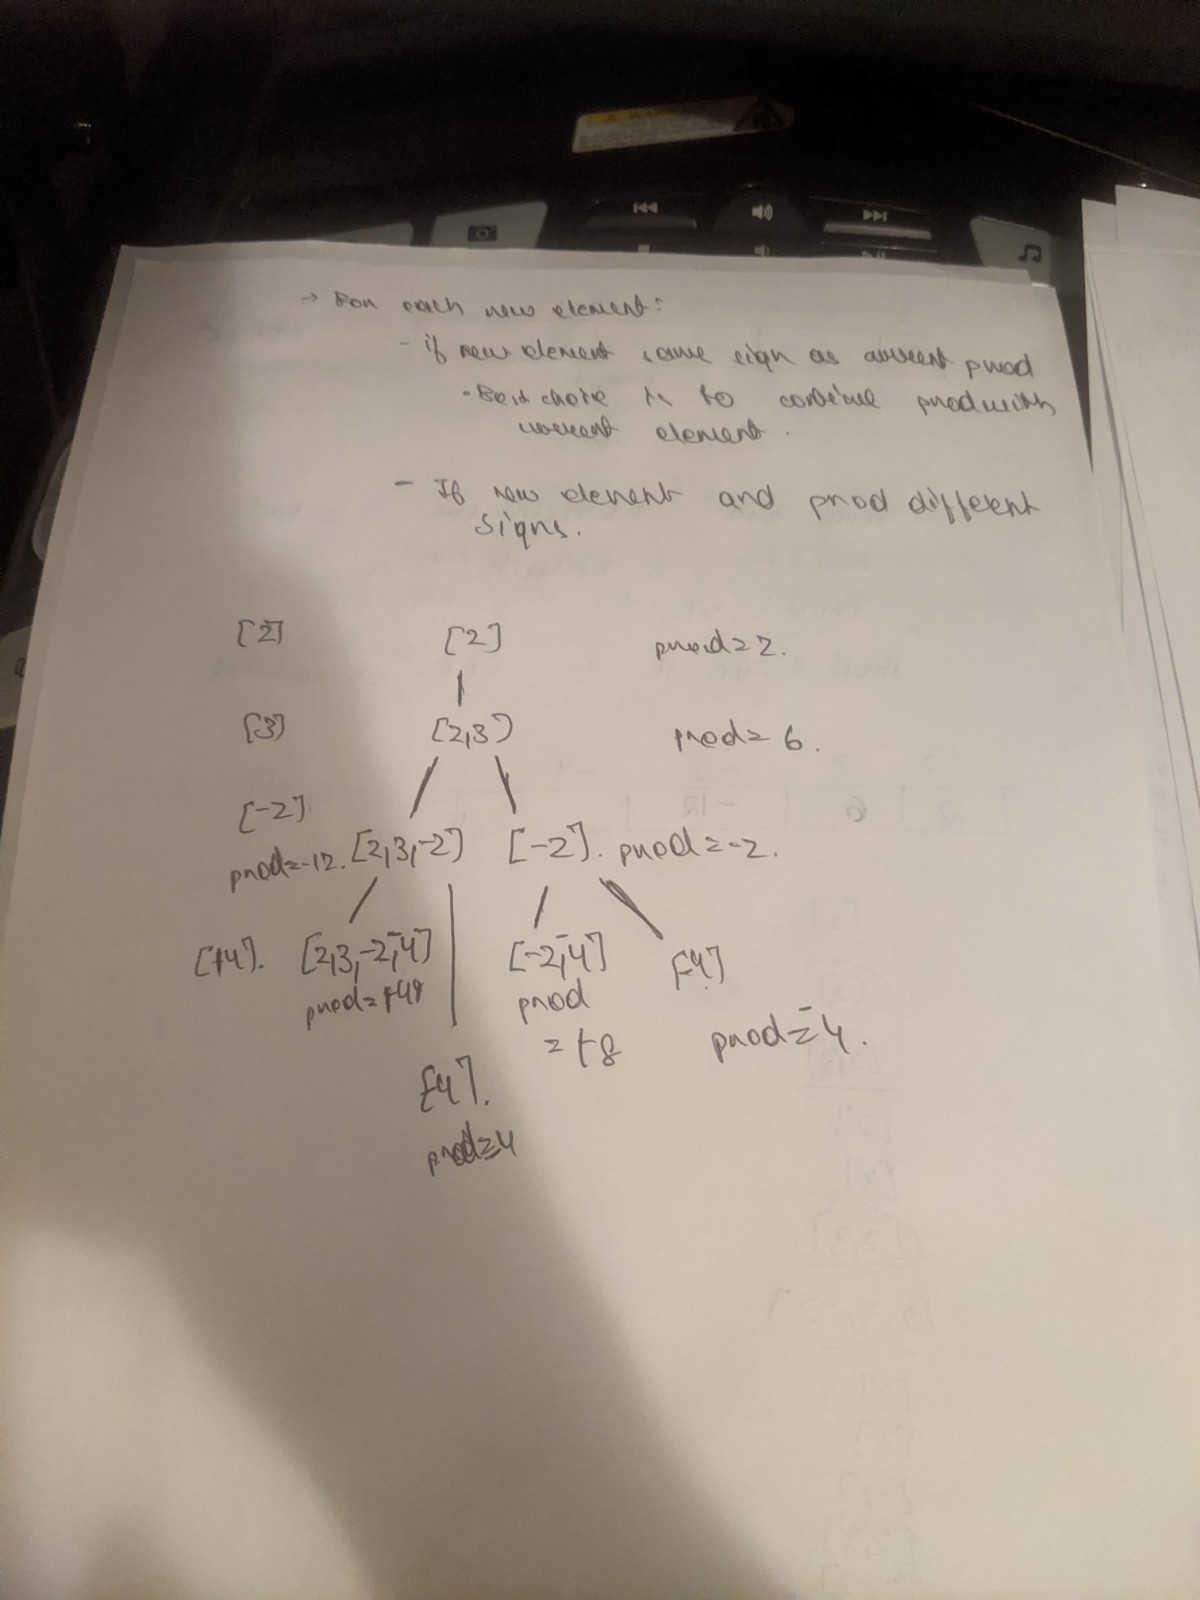 WARN
→ For each new element:
- if new element same sign as current prod
- Best choice is to continue prod with
current element.
- If new element and prod different
signs.
[2] [2] prod=2.
[3] [2,3] prod=6.
[-2]
prod=-12. [2,3,-2] [-2]. prod=-2.
[-4]. [2,3,-2,-4] [-2,-4] [-4]
prod=+48 prod
=+8 prod=-4.
[-4].
prod=-4